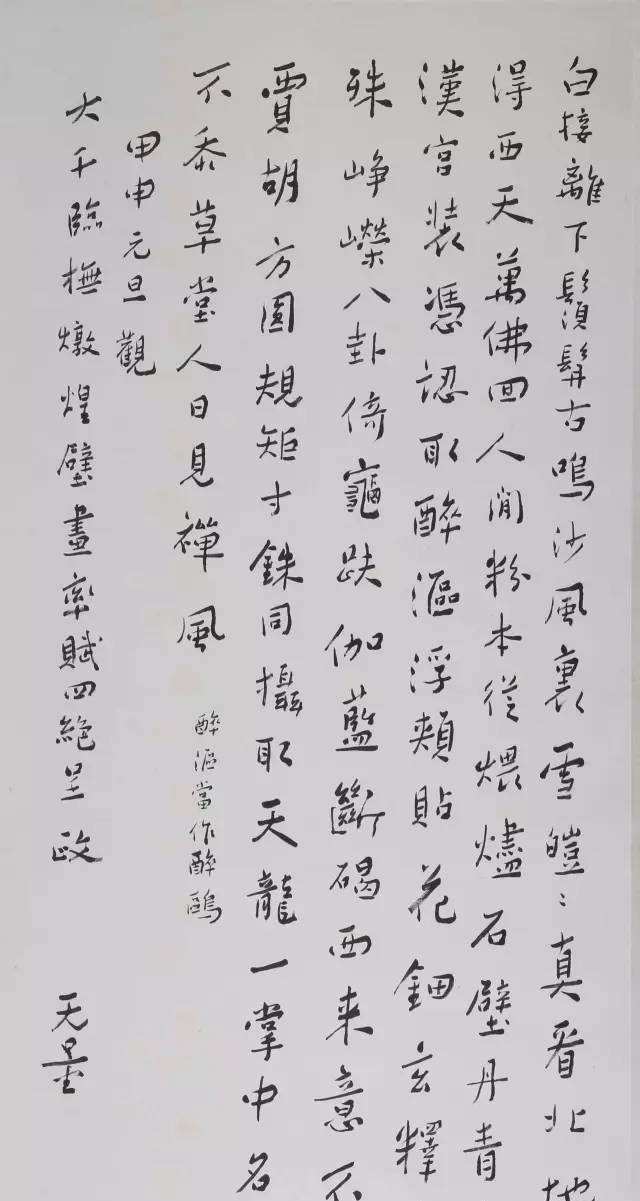 白接離下鬚髯古鳴沙風裏雪皚々真看北地
得西天萬佛回人間粉本從煨燼石壁丹青
漢宮裝憑認取醉漚浮頰貼花鈿玄釋
殊崢嶸八卦倚龜趺伽藍斷碣西来意不
賈胡方圓規矩寸銖同攝取天龍一掌中名
不忝草堂人日見禪風
醉漚當作醉鷗
甲申元旦觀
大千臨橅燉煌壁畫率賦四絶呈政